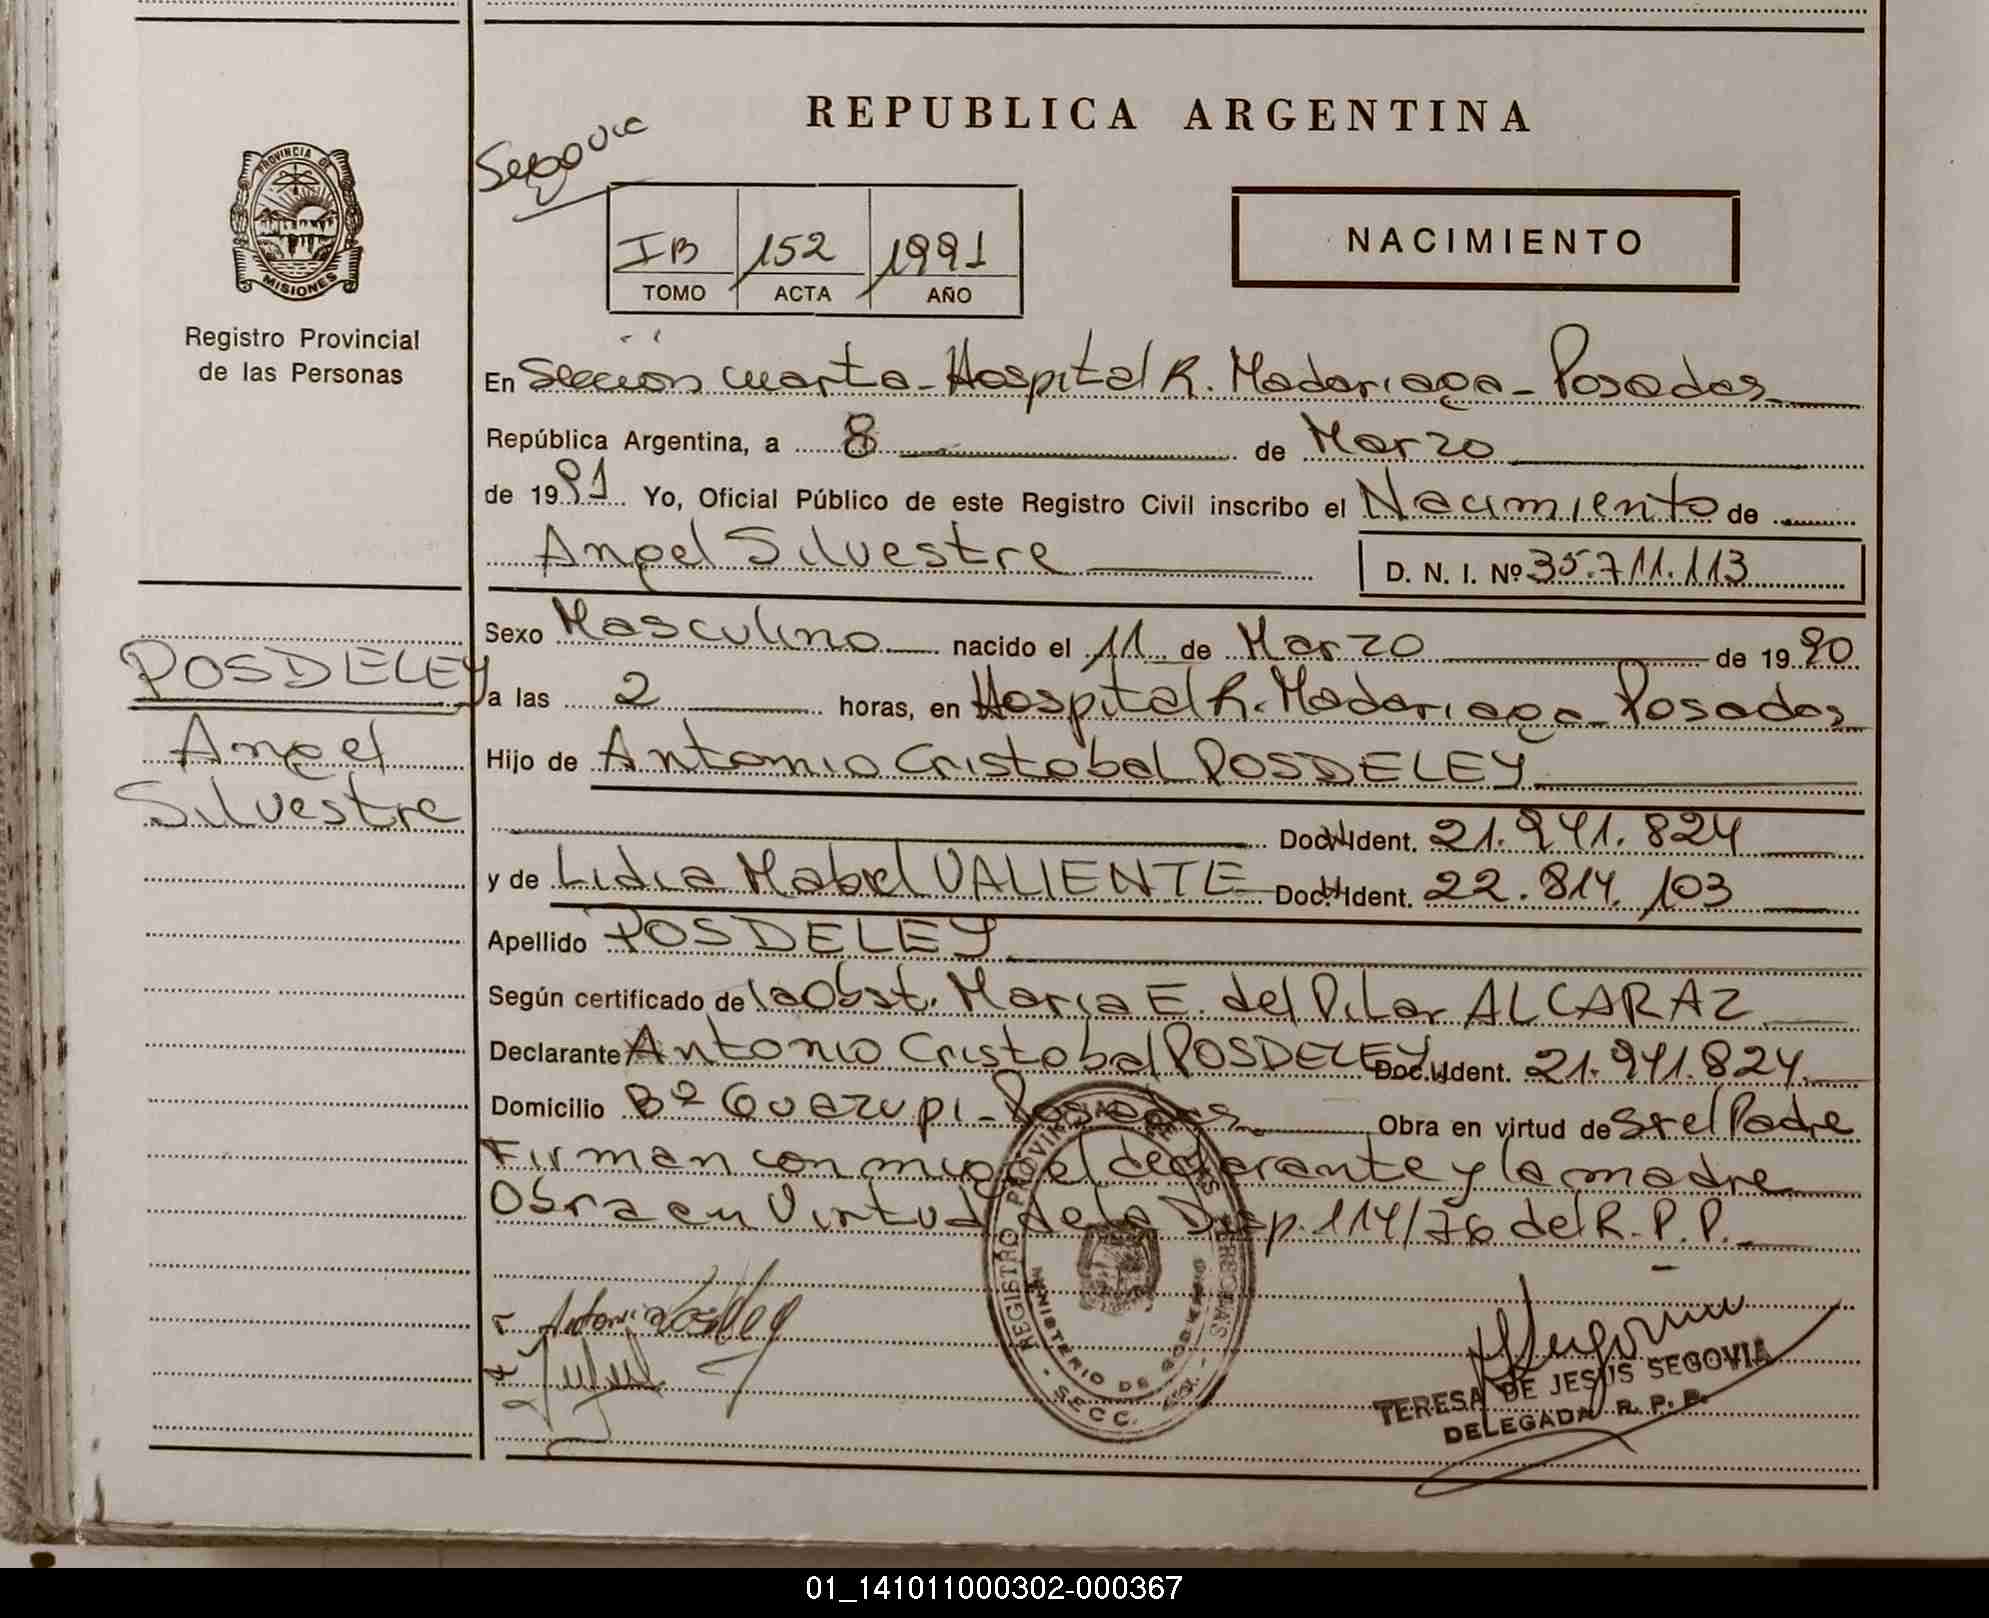 REPUBLICA ARGENTINA
Segovia
PROVINCIA DE
MISIONES
Registro Provincial
de las Personas
IB 152 1991
TOMO ACTA AÑO
NACIMIENTO
En Sección cuarta - Hospital R. Madariaga - Posadas
República Argentina, a 8 de Marzo
de 1991 Yo, Oficial Público de este Registro Civil inscribo el Nacimiento de
Angel Silvestre D. N. I. Nº 35.711.113
Sexo Masculino nacido el 11 de Marzo de 1990
a las 2 horas, en Hospital R. Madariaga - Posadas
Hijo de Antonio Cristobal POSDELEY
Doc. Ident. 21.941.824
y de Lidia Mabel VALIENTE Doc. Ident. 22.814.103
Apellido POSDELEY
Según certificado de la Obst. Maria E. del Pilar ALCARAZ
Declarante Antonio Cristobal POSDELEY Doc. Ident. 21.941.824
Domicilio Bº Guazupi - Posadas Obra en virtud de Sr el Padre
Firman con migo el declarante y la madre
Obra en Virtud de la Disp. 114/76 del R.P.P.
POSDELEY
Angel
Silvestre
REGISTRO PROVINCIAL DE LAS PERSONAS
MINISTERIO DE GOBIERNO
SECC.
TERESA DE JESUS SEGOVIA
DELEGADA R. P. P.
01_141011000302-000367